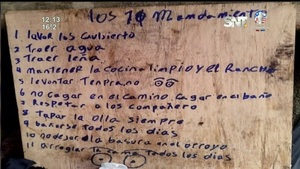 12:13
16/2
SNT
los 10 Mandamiento
1 lavar los Caubierto
2 Traer agua
3 Traer leña
4 mantener la cocina limpio y el Rancho
5 levantar Temprano
6 no cagar en el camino cagar en el baño
7 Respetar a los compañero
8 Tapar la olla siempre
9 bañarse todos los dias
10 no dejar la basura en el arroyo
11 Arreglar la cama Todos los dias